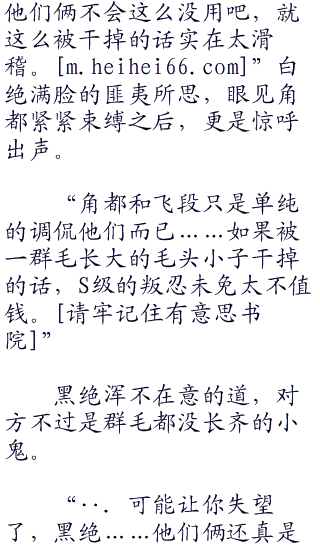 他们俩不会这么没用吧，就
这么被干掉的话实在太滑
稽。[m.heihei66.com]”白
绝满脸的匪夷所思，眼见角
都紧紧束缚之后，更是惊呼
出声。
“角都和飞段只是单纯
的调侃他们而已……如果被
一群毛长大的毛头小子干掉
的话，S级的叛忍未免太不值
钱。[请牢记住有意思书
院]”
黑绝浑不在意的道，对
方不过是群毛都没长齐的小
鬼。
“··．可能让你失望
了，黑绝……他们俩还真是